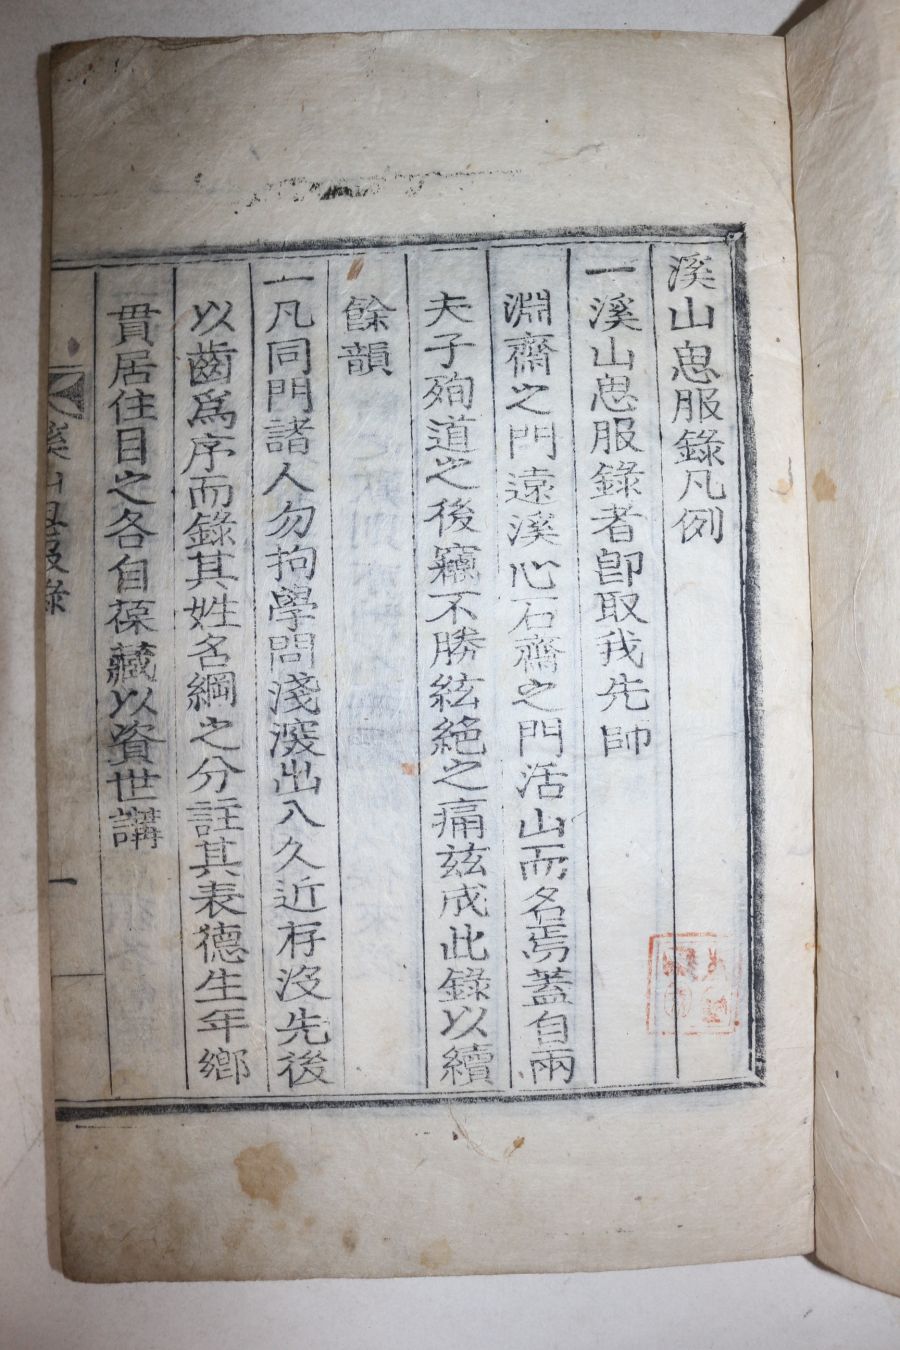 溪山思服錄凡例
一溪山思服錄者卽取我先師
淵齋之門遠溪心石齋之門活山而名焉蓋自兩
夫子殉道之後竊不勝絃絶之痛玆成此錄以續
餘韻
一凡同門諸人勿拘學問淺深出入久近存沒先後
以齒爲序而錄其姓名綱之分註其表德生年鄉
貫居住目之各自葆藏以資世講
溪山思服錄
一